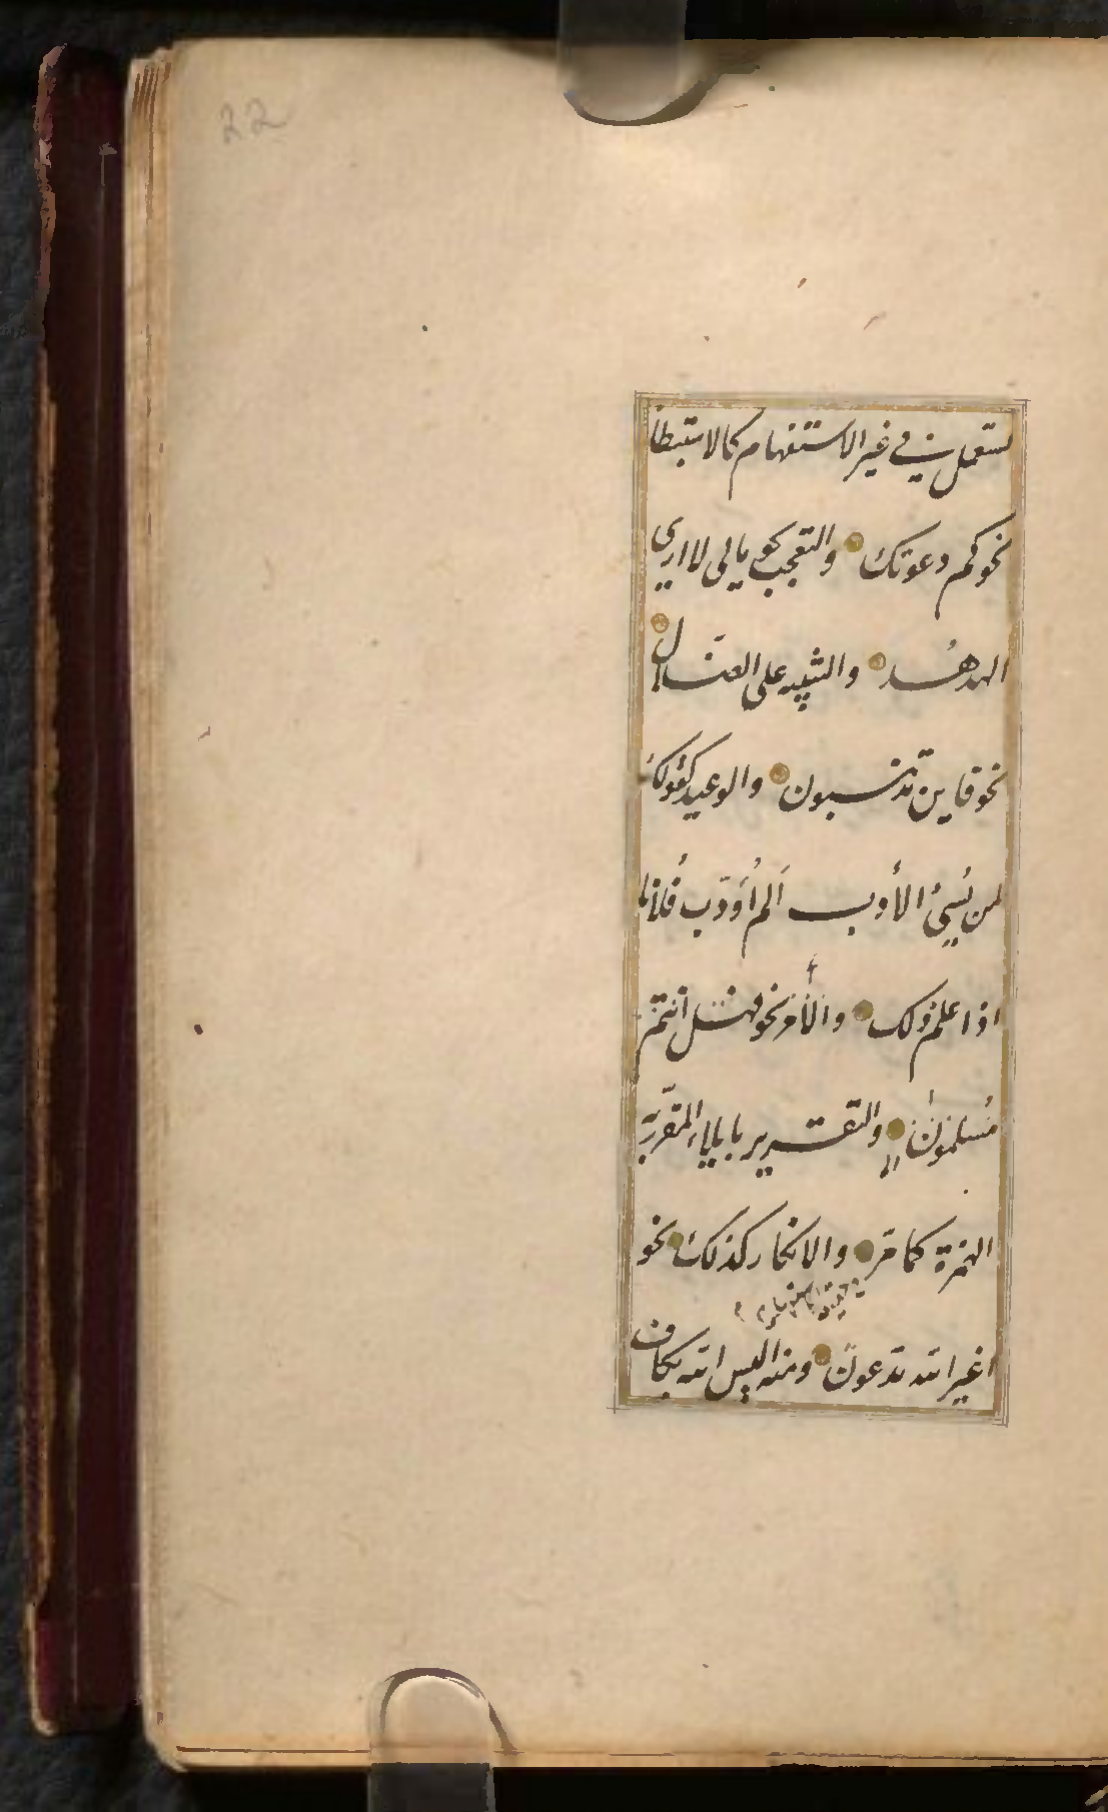 22
تستعمل في غير الاستفهام كالاستبطا
نحو كم دعوتك والتعجب نحو مالى لا ارى
الهدهد والتنبيه على الضلال
نحو فاين تذهبون والوعيد كقولك
لمن يُسئ الأدب أَلم أُؤدّب فُلانا
اذا علم ذلك والأمر نحو فهل أنتم
مُسلمون والتقرير بايلاء المقرر به
الهمزة كما مرّ والانكار كذلك نحو
اغير الله تدعون ومنه اليس الله بكاف